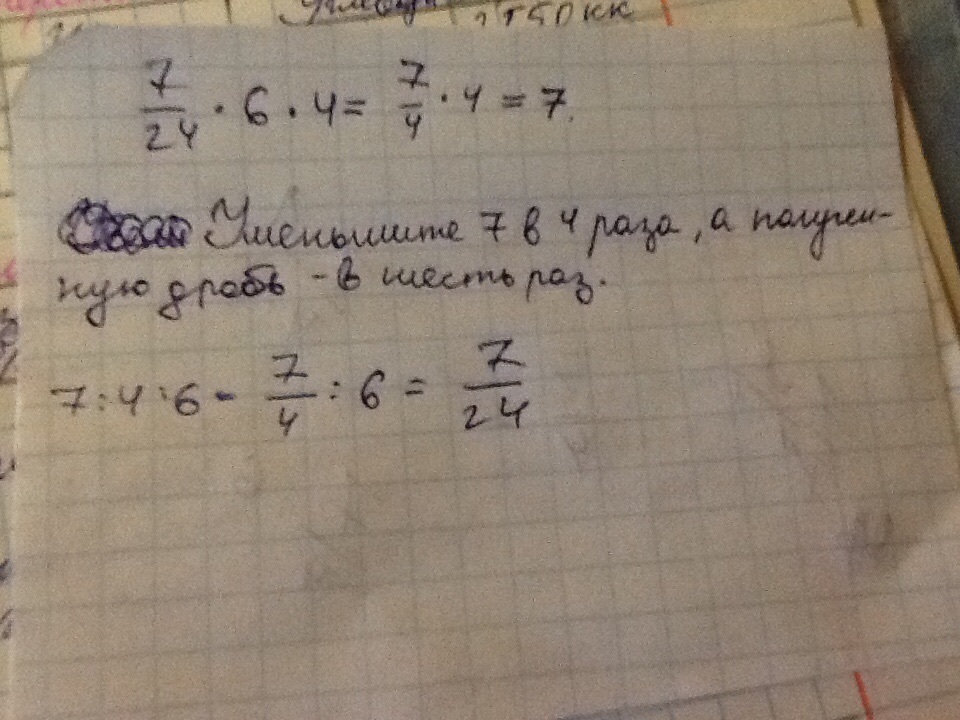 1150 кк
7/24 · 6 · 4 = 7/4 · 4 = 7.
Уменьшите 7 в 4 раза, а получен-
ную дробь - в шесть раз.
7 : 4 : 6 - 7/4 : 6 = 7/24